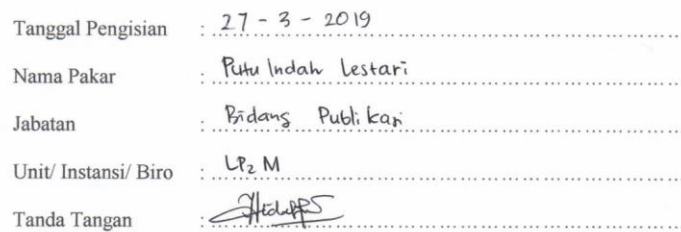 Tanggal Pengisian : 27 - 3 - 2019
Nama Pakar : Putu Indah Lestari
Jabatan : Bidang Publikasi
Unit/ Instansi/ Biro : LP2M
Tanda Tangan :